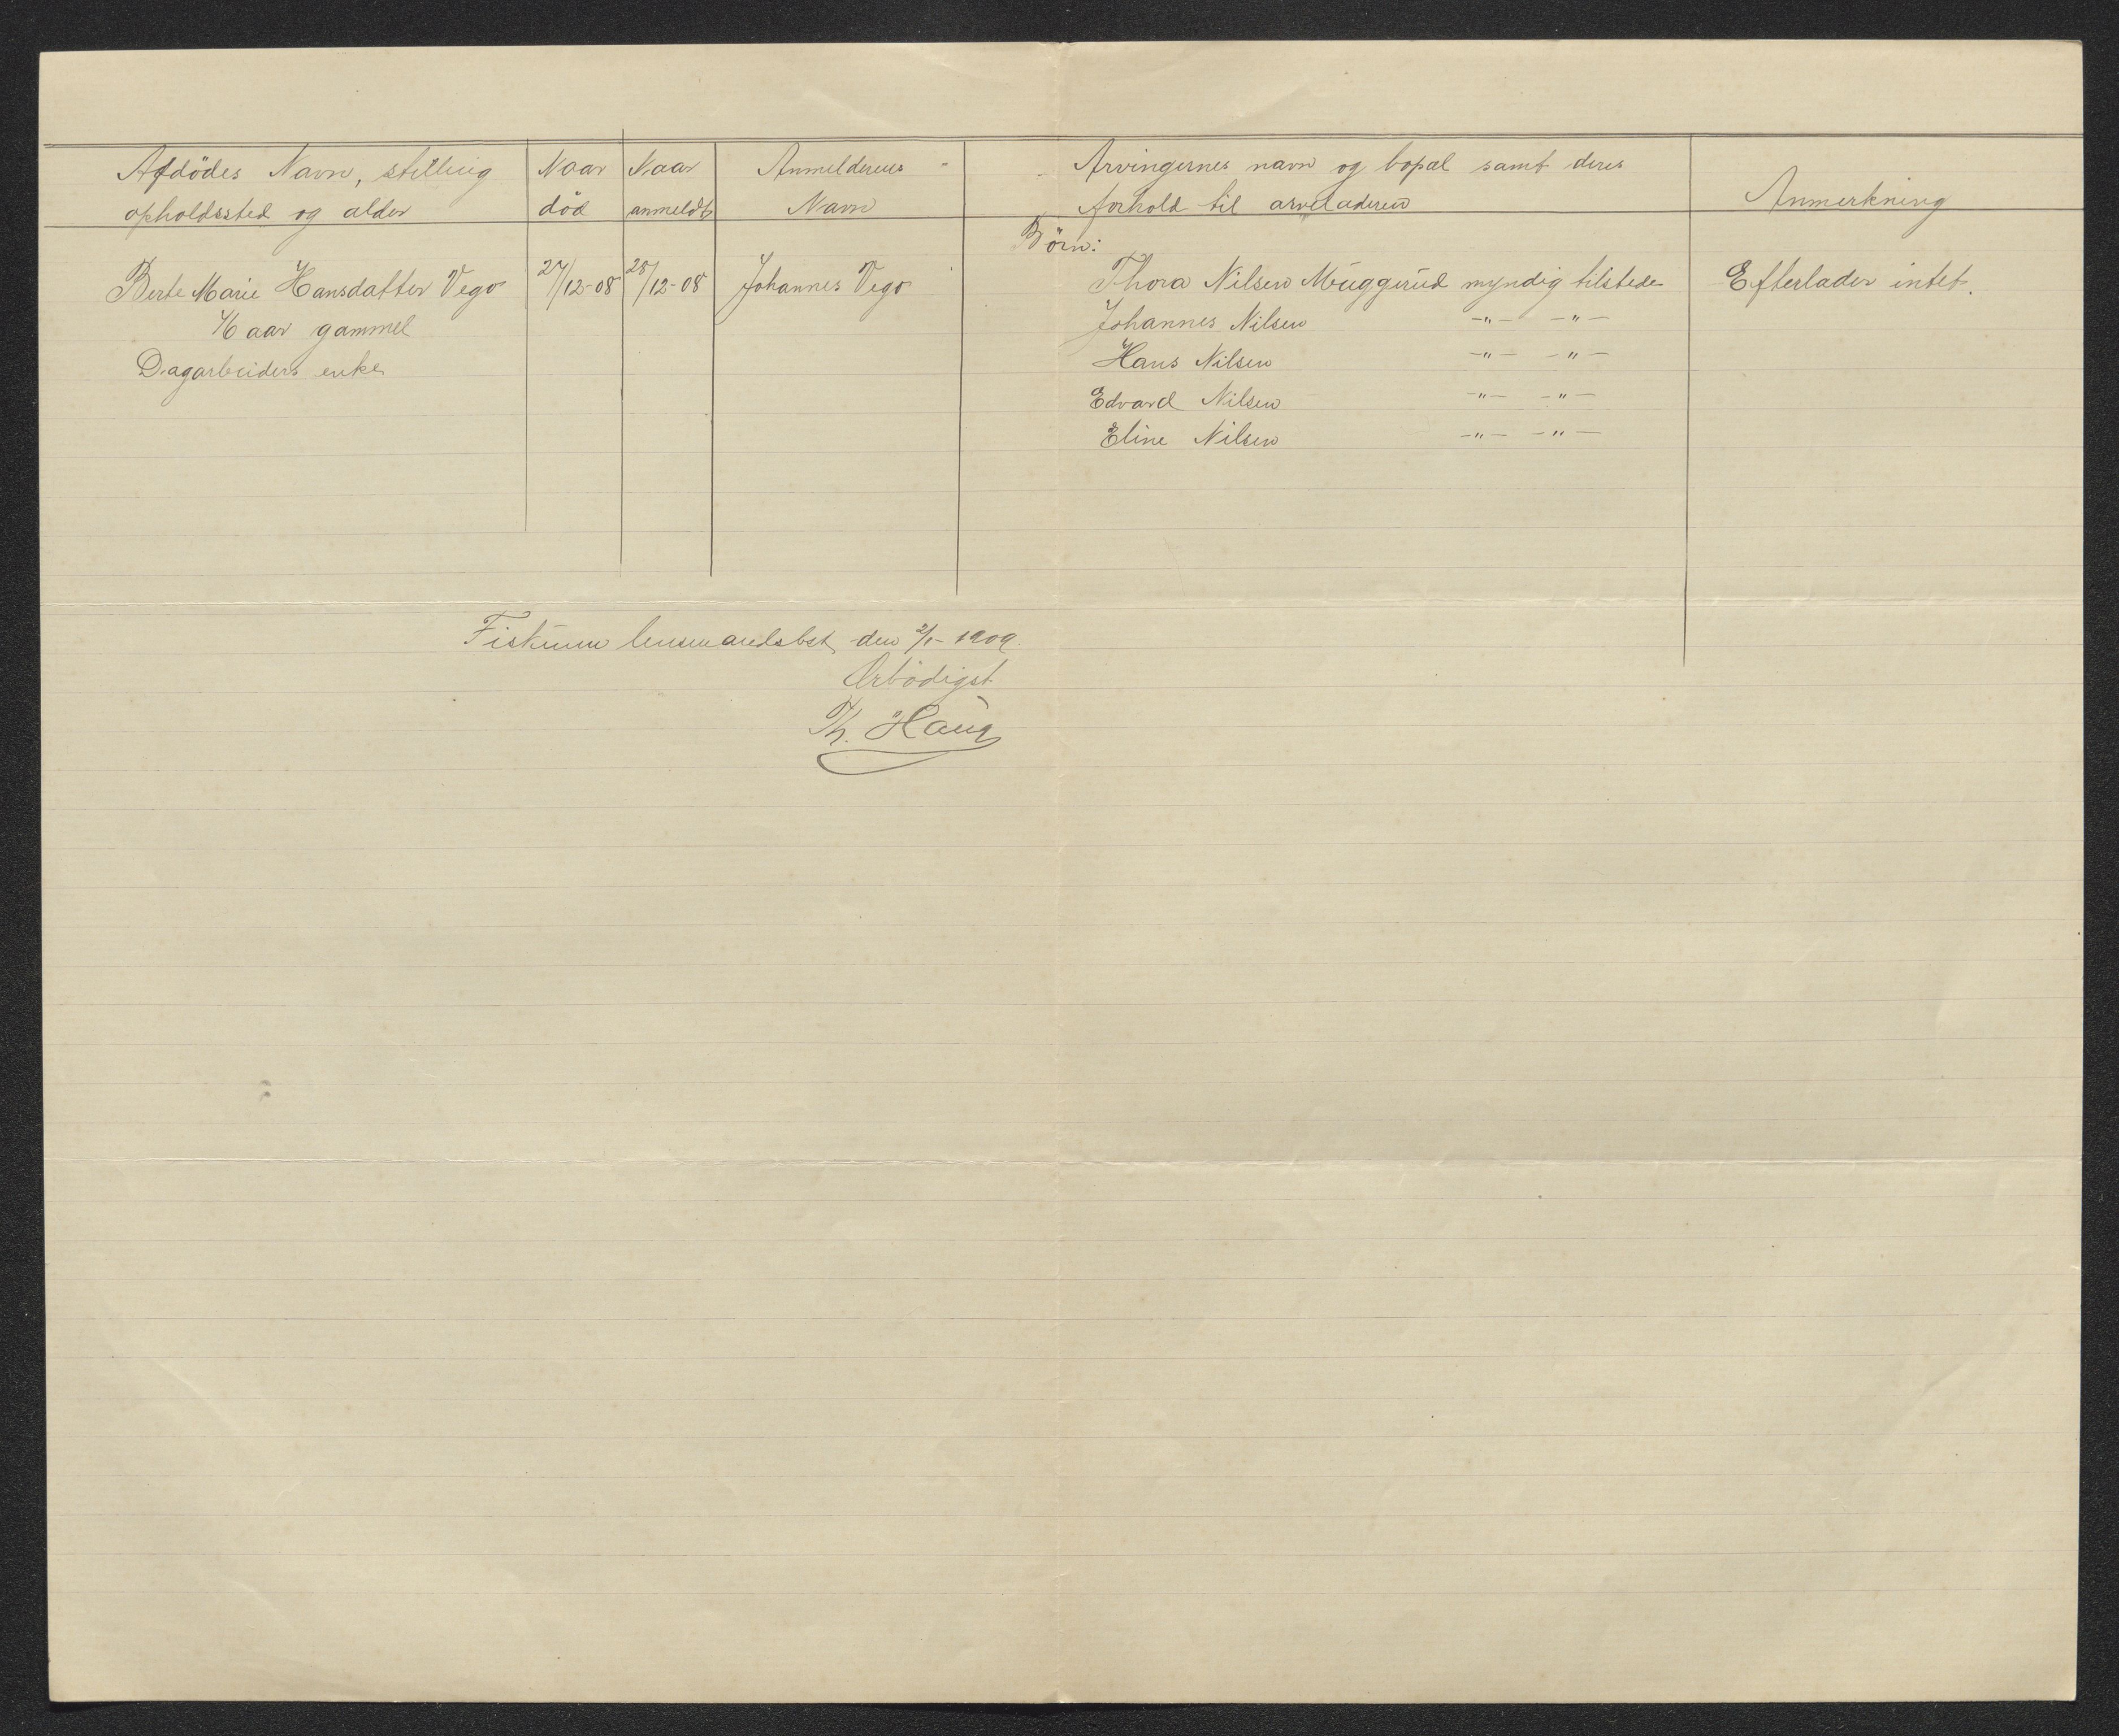 Afdödes Navn, stilling
opholdssted og alder
Naar
död
Naar
anmeldt
Anmelderens
Navn
Arvingernes navn og bopæl samt deres
forhold til arveladeren
Anmerkning
Berte Marie Hansdatter Vego
76 aar gammel
Dagarbeiders enke
27/12-08
28/12-08
Johannes Vego
Börn:
Thora Nilsen Muggerud myndig tilstede
Johannes Nilsen -"- -"-
Hans Nilsen -"- -"-
Edvard Nilsen -"- -"-
Eline Nilsen -"- -"-
Efterlader intet.
Fiskum lensmandsbst, den 2/1-1909.
Ærbödigst
Th. Haug